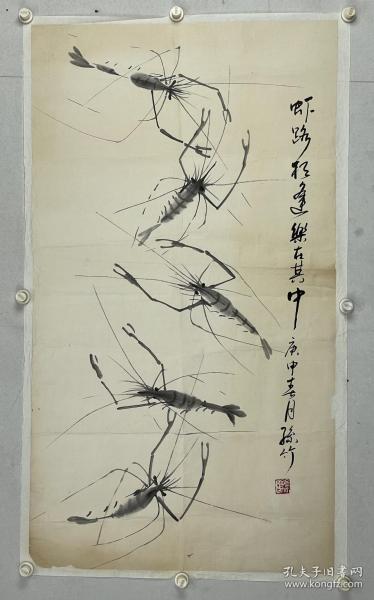 虾路相逢樂在其中
庚申春月孫竹
孔夫子旧书网
www.kongfz.com